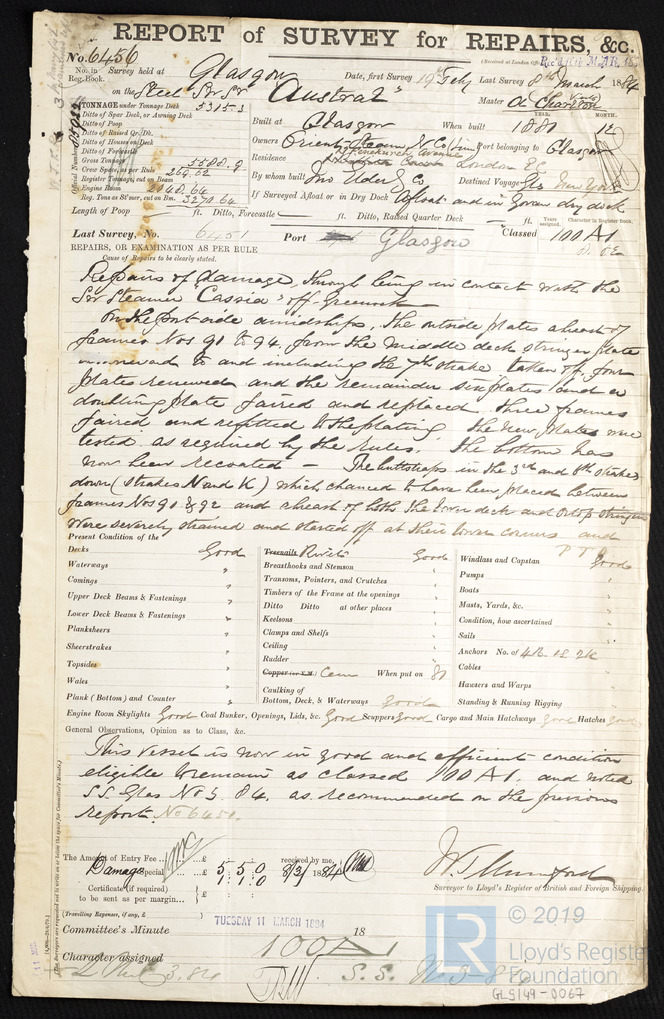 REPORT of SURVEY for REPAIRS, &c.
No. 6456
(Received at London
No. in Reg. Book. Survey held at Glasgow Date, first Survey 19th Feby Last Survey 8th March 1884
on the Steel Scr Sr "Austral" Master
TONNAGE under Tonnage Deck 5315.3
Ditto of Spar Deck, or Awning Deck
Ditto of Poop
Ditto of Raised Qr. Dk.
Ditto of Houses on Deck
Ditto of Forecastle
Gross Tonnage 5588.9
Crew Space, as per Rule 269.62
Register Tonnage, cut on Beam
Engine Room 2048.64
Reg. Tons as St'mer, cut on Bm. 3270.64
Official Number 85032
Built at Glasgow When built YEAR. 1881 MONTH. 12
Owners Orient Steam N Co Port belonging to Glasgow
Residence Fenchurch Avenue London EC
By whom built Jno Elder & Co Destined Voyage New York
If Surveyed Afloat or in Dry Dock Afloat and in Govan dry dock
Length of Poop ft. Ditto, Forecastle ft. Ditto, Raised Quarter Deck ft.
Years assigned. Character in Register Book.
Last Survey, No. 6451 Port Glasgow Classed 100 A1
REPAIRS, OR EXAMINATION AS PER RULE
Cause of Repairs to be clearly stated.
Repairs of damage, through being in contact with the
Scr Steamer "Cassia" off Greenock
On the port side amidships, the outside plates abreast of
frames Nos 91 to 94, from the middle deck stringer plate
downward to and including the 7th strake taken off, four
plates renewed and the remainder six plates and a
doubling plate faired and replaced. three frames
faired and refitted to the plating. the new plates were
tested as required by the Rules. The bottom has
now been recoated - The buttstraps in the 3rd and 6th strakes
down (strakes N and K) which chanced to have been placed between
frames Nos 91 & 92 and abreast of both the lower deck and Orlop stringers
were severely strained and started off at their lower corners and
P T O
Present Condition of the
Decks Good
Waterways "
Comings "
Upper Deck Beams & Fastenings "
Lower Deck Beams & Fastenings "
Planksheers "
Sheerstrakes "
Topsides "
Wales "
Plank (Bottom) and Counter "
Treenails Rivets Good
Breasthooks and Stemson "
Transoms, Pointers, and Crutches "
Timbers of the Frame at the openings "
Ditto Ditto at other places "
Keelsons "
Clamps and Shelfs "
Ceiling "
Rudder "
Copper (or Y.M.) Cem When put on 81
Caulking of Bottom, Deck, & Waterways Good
Windlass and Capstan Good
Pumps "
Boats "
Masts, Yards, &c. "
Condition, how ascertained "
Sails "
Anchors No. of 4B. 1S 2K
Cables "
Hawsers and Warps "
Standing & Running Rigging "
Engine Room Skylights Good Coal Bunker, Openings, Lids, &c. Good Scuppers Good Cargo and Main Hatchways Good Hatches Good
General Observations, Opinion as to Class, &c.
This vessel is now in good and efficient condition
eligible to remain as classed 100 A1. and noted
S.S. Glas No 3. 84. as recommended on the previous
report. No 6451.
The Amount of Entry Fee ... £ received by me,
Damage Special £ 5.5.0 8/3/1884
1.1.0
Certificate (if required) to be sent as per margin £
(Travelling Expenses, if any, £ )
Surveyor to Lloyd's Register of British and Foreign Shipping.
TUESDAY 11 MARCH 1884
Committee's Minute 18
Character assigned 100A1
S.S. No 3-84
LR
© 2019
Lloyd's Register
Foundation
GLS149-0067